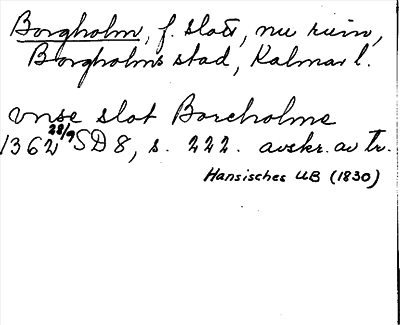 Borgholm, f. slott, nu ruin,
Borgholms stad, Kalmar l.
vnse slot Borcholme
1362 28/9 SD 8, s. 222. avskr. av tr.
Hansisches UB (1830)